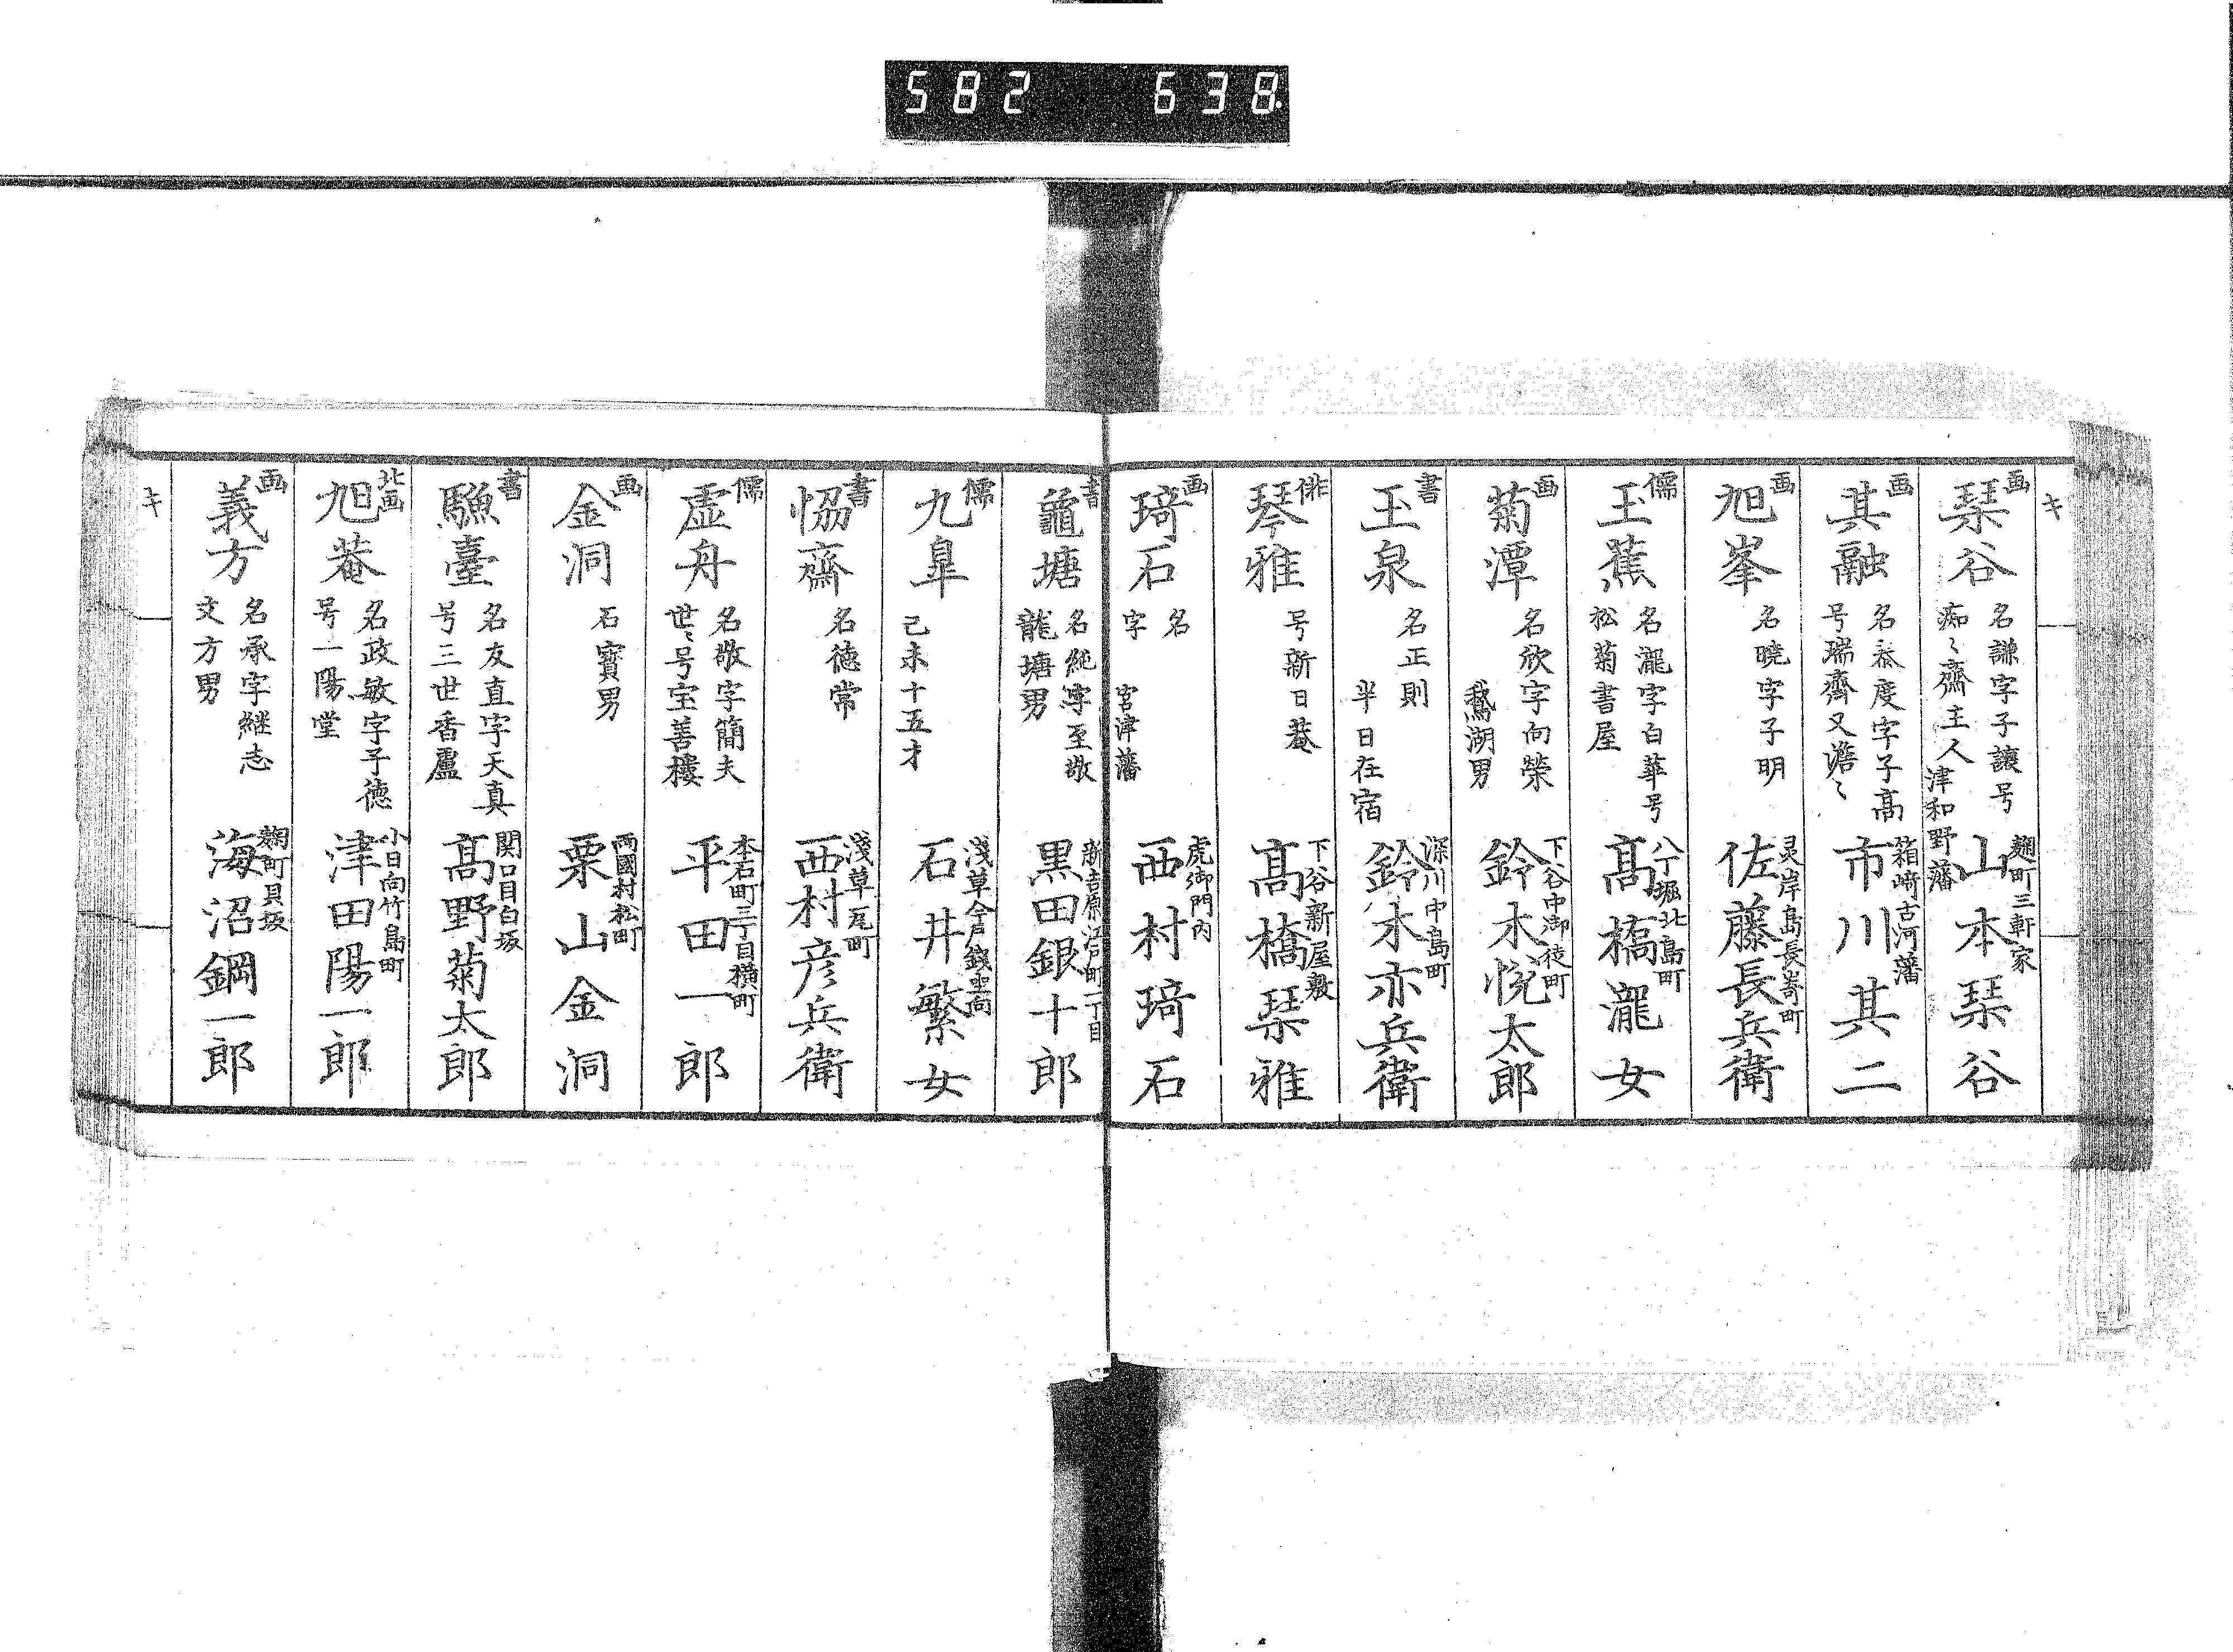 582 638
キ
画
琹谷
名謙字子讓号
痴〻齋主人
津和野藩
麹町三軒家
山本琹谷
画
其融
名泰度字子高
号瑞齋又澹〻
箱崎古河藩
市川其二
画
旭峯
名曉字子明
灵岸島長嵜町
佐藤長兵衛
儒
玉蕉
名瀧字白華号
松菊書屋
八丁堀北島町
髙橋瀧女
画
菊潭
名欣字向榮
鵞湖男
下谷中御徒町
鈴木悦太郎
書
玉泉
名正則
半日在宿
深川中島町
鈴木亦兵衛
俳
琴雅
号新日菴
下谷新屋敷
髙橋琹雅
画
琦石
名
字
宮津藩
虎御門内
西村琦石
書
龜塘
名純字至敬
龍塘男
新吉原江戸町二丁目
黒田銀十郎
儒
九皐
己未十五才
淺草今戸錢座向
石井繁女
書
恊齋
名徳常
淺草瓦町
西村彦兵衛
儒
虚舟
名敬字簡夫
世〻号宝善樓
本石町三丁目横町
平田一郎
画
金洞
石寶男
両國村松町
栗山金洞
書
驗臺
名友直字天真
号三世香廬
関口目白坂
髙野菊太郎
北画
旭菴
名政敏字子徳
号一陽堂
小日向竹島町
津田陽一郎
画
義方
名承字継志
文方男
麹町貝坂
海沼鋼一郎
キ